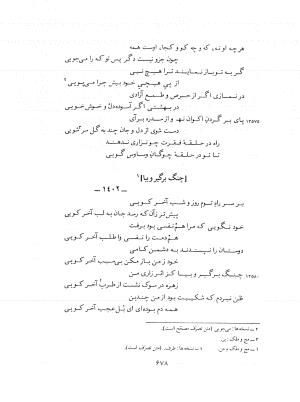 هر چه او نه، که و چه کو و کجا، اوست همه
چون جزو نیست دگر پس تو که را می‌جویی
گر به تو باز نمایند ترا هیچ نیی
از پی هیچی خود بیش چرا می‌پویی ۲
در نمازی اگر از حرص و طمع آزادی
در بهشتی اگر آسوده‌دل و خوش‌خویی
۱۲۵۷۵ پای بر گردن اکوان نه و از سدره برآی
دست شوی از دل و جان چند به گل سر شویی
راه در حلقهٔ فقرت چو نزاری ندهند
تا تو در حلقهٔ چوگان وساوس گویی
[چنگ برگیر و بیا] ۱
— ۱۴۰۲ —
بر سر راه توم روز و شب آخر کویی
پیش‌تر زآن که رسد جان به لب آخر کویی
خود نگویی که مرا هم‌نفسی بود برفت
هم‌دمت را نفسی وا طلب آخر کویی
دوستان را نپسندند به دشمن کامی
خود ز من باز مکن بی‌سبب آخر کویی
۱۲۵۸۰ چنگ برگیر و بیا کز اثر زاری من
زهره در سوک نشست از طرب آخر کویی
ظن نبردم که شکیبت بود از من چندین
همه دم بوده‌ای ای بُل‌عجب آخر کویی
۲ــ نسخه‌ها: می‌جویی (متن تصرّف مصحّح است).
۳ــ مج و ملک: بر.
۱ــ مج و ملک و من. ۲ــ نسخه‌ها: طرف. (متن تصرّف است).
۶۷۸